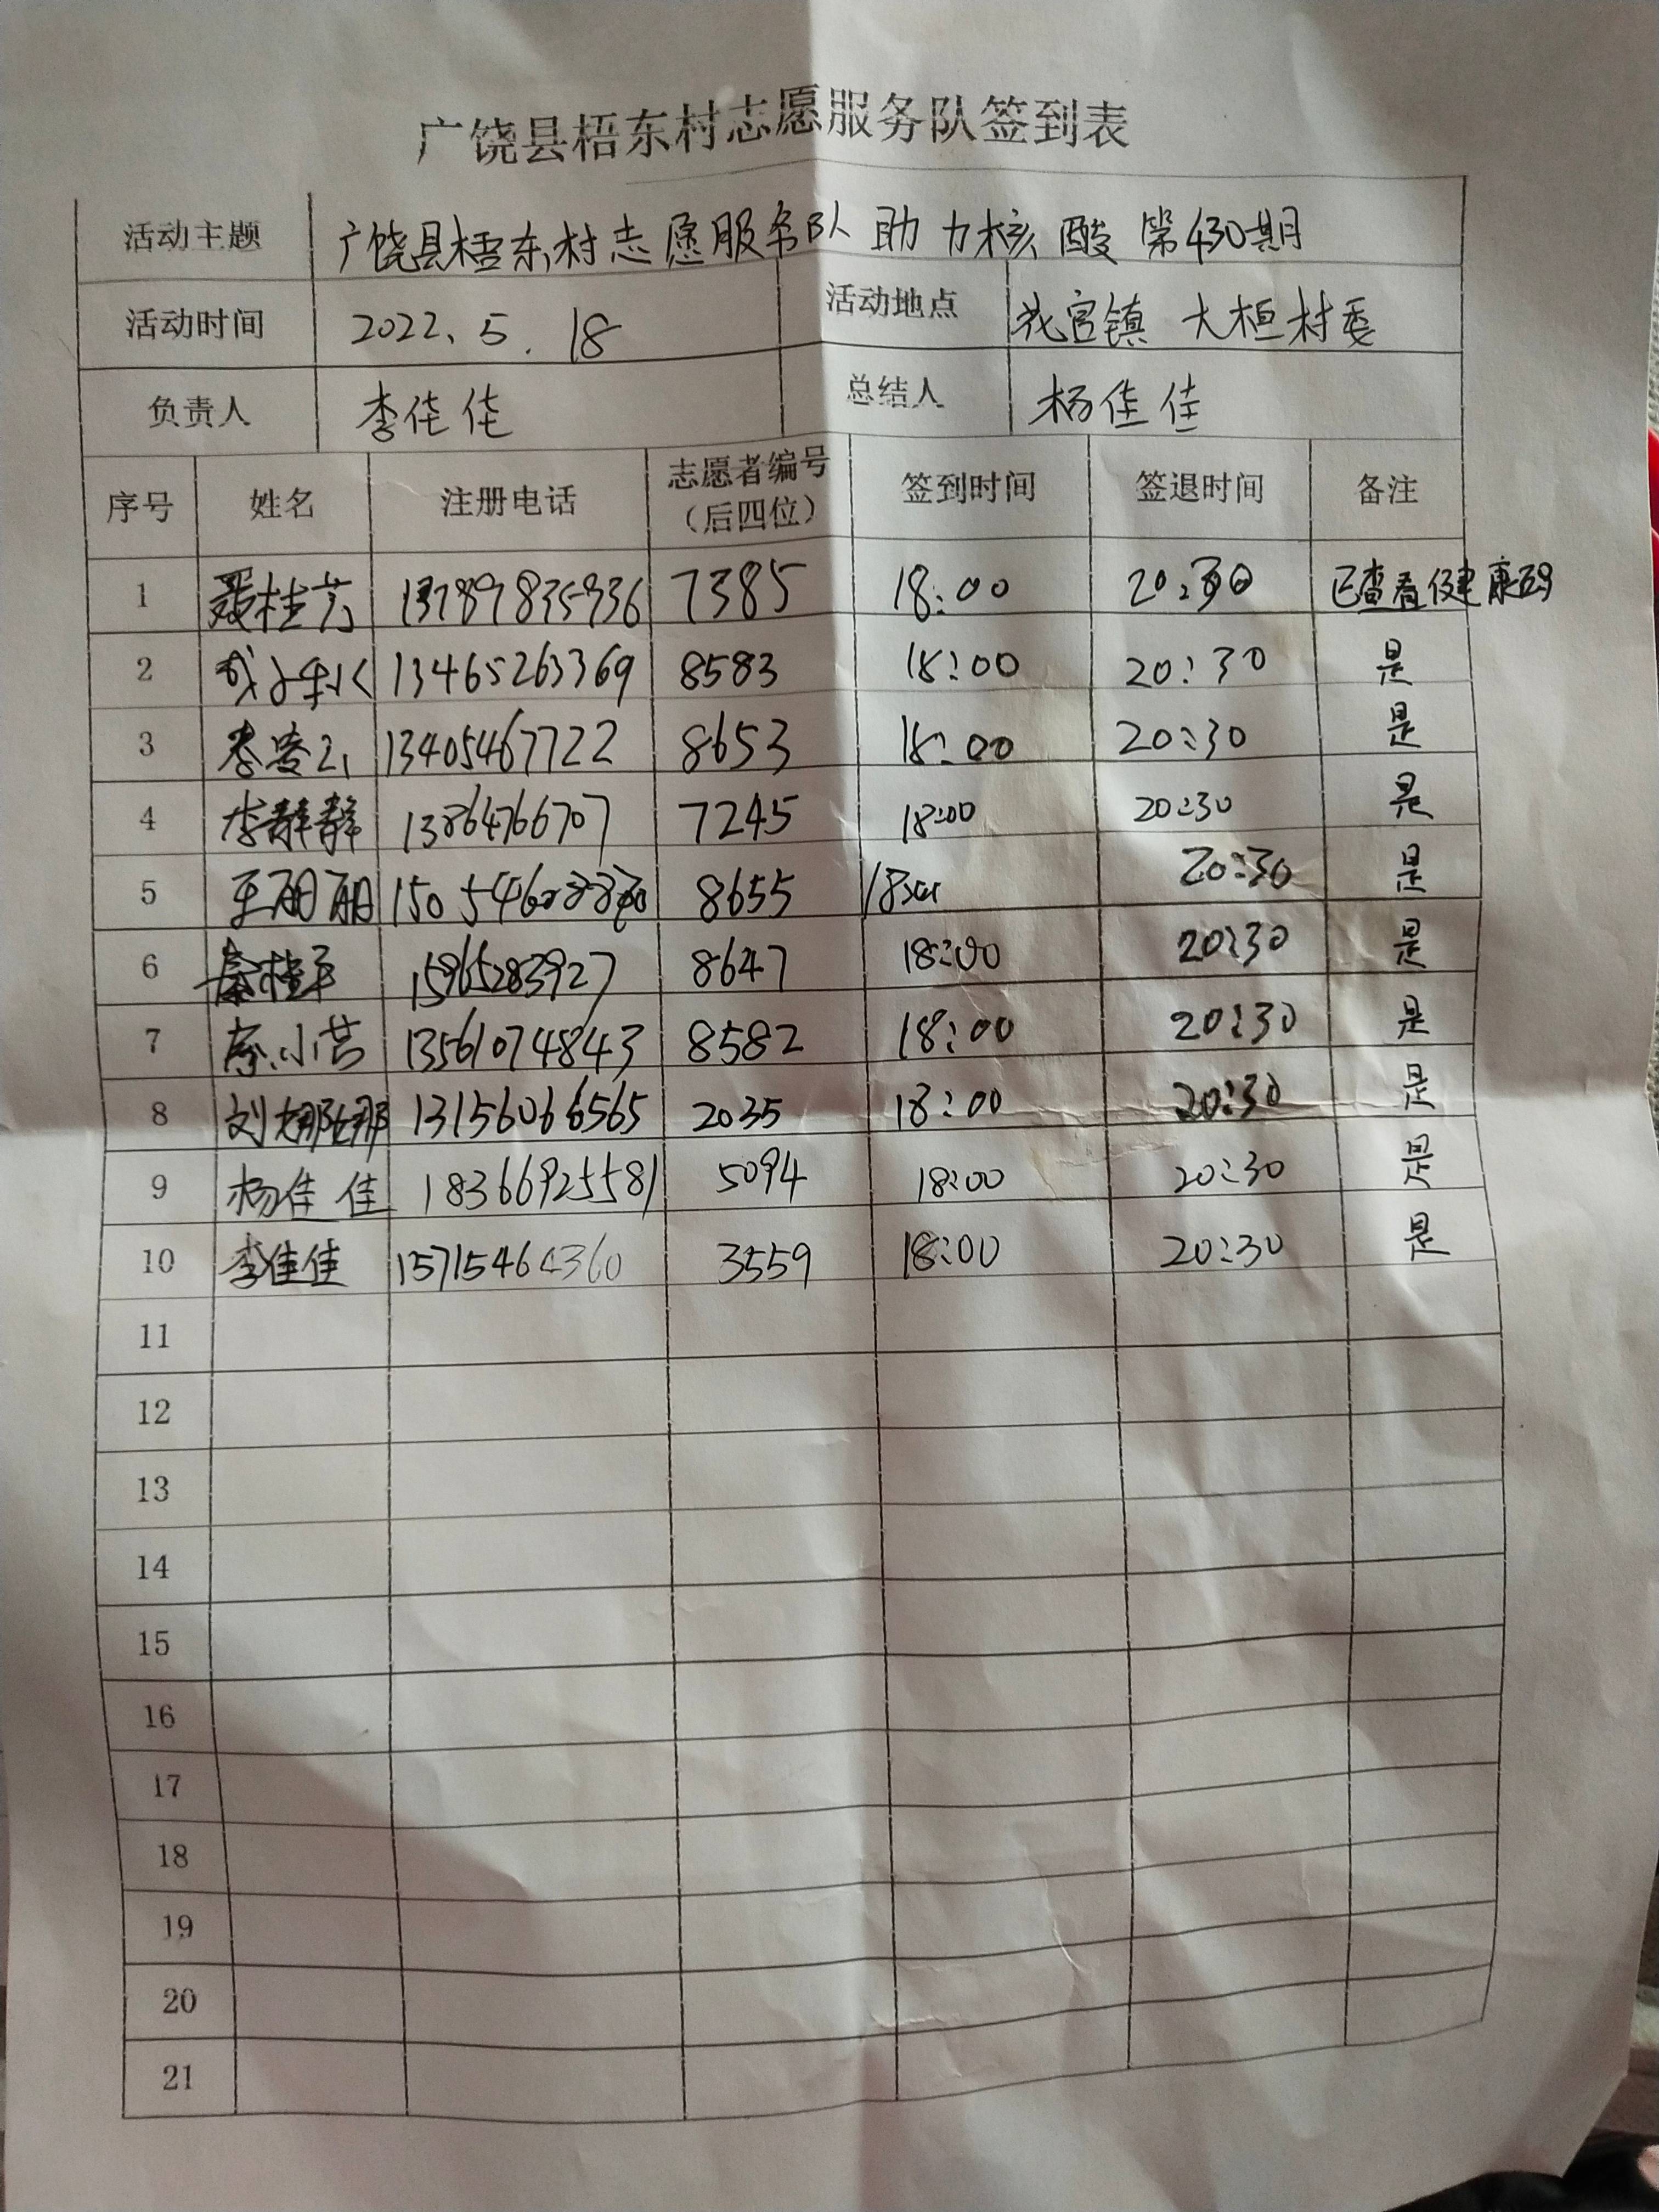 广饶县梧东村志愿服务队签到表
活动主题 广饶县梧东村志愿服务队助力核酸第430期
活动时间 2022、5.18 活动地点 花官镇 大桓村委
负责人 李佳佳 总结人 杨佳佳
序号 姓名 注册电话 志愿者编号（后四位） 签到时间 签退时间 备注
1 聂桂芳 7385 18:00 20:30 已查看健康码
2 13465263369 8583 18:00 20:30 是
3 13405467722 8653 18:00 20:30 是
4 李静静 13864766707 7245 18:00 20:30 是
5 王丽丽 8655 20:30 是
6 秦桂平 15965283927 8647 18:00 20:30 是
7 13561074843 8582 18:00 20:30 是
8 刘娜娜 13156066565 2035 18:00 20:30 是
9 杨佳佳 18366925581 5094 18:00 20:30 是
10 李佳佳 15715464360 3559 18:00 20:30 是
11
12
13
14
15
16
17
18
19
20
21